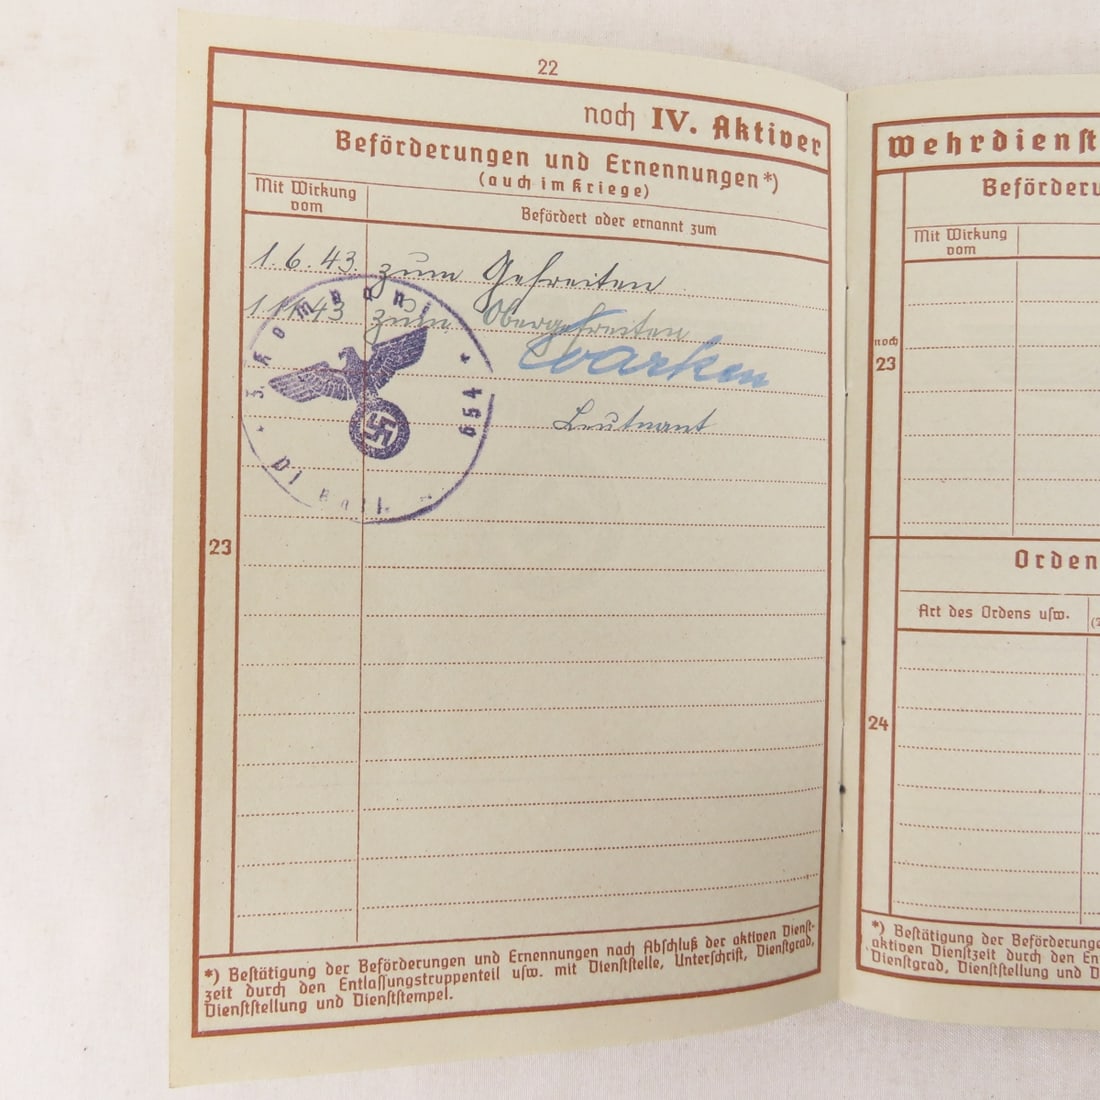 22
noch IV. Aktiver
Beförderungen und Ernennungen*)
(auch im Kriege)
Mit Wirkung
vom
Befördert oder ernannt zum
1.6.43. zum Gefreiten
43 zum Obergefreiten
Leutnant
3. Kompani
654
23
*) Bestätigung der Beförderungen und Ernennungen nach Abschluß der aktiven Dienst-
zeit durch den Entlassungstruppenteil usw. mit Dienststelle, Unterschrift, Dienstgrad,
Dienststellung und Dienststempel.
Wehrdienst
Beförderu
Mit Wirkung
vom
noch
23
Orden
Art des Ordens usw.
24
*) Bestätigung der Beförderunge
aktiven Dienstzeit durch den En
Dienstgrad, Dienststellung und D